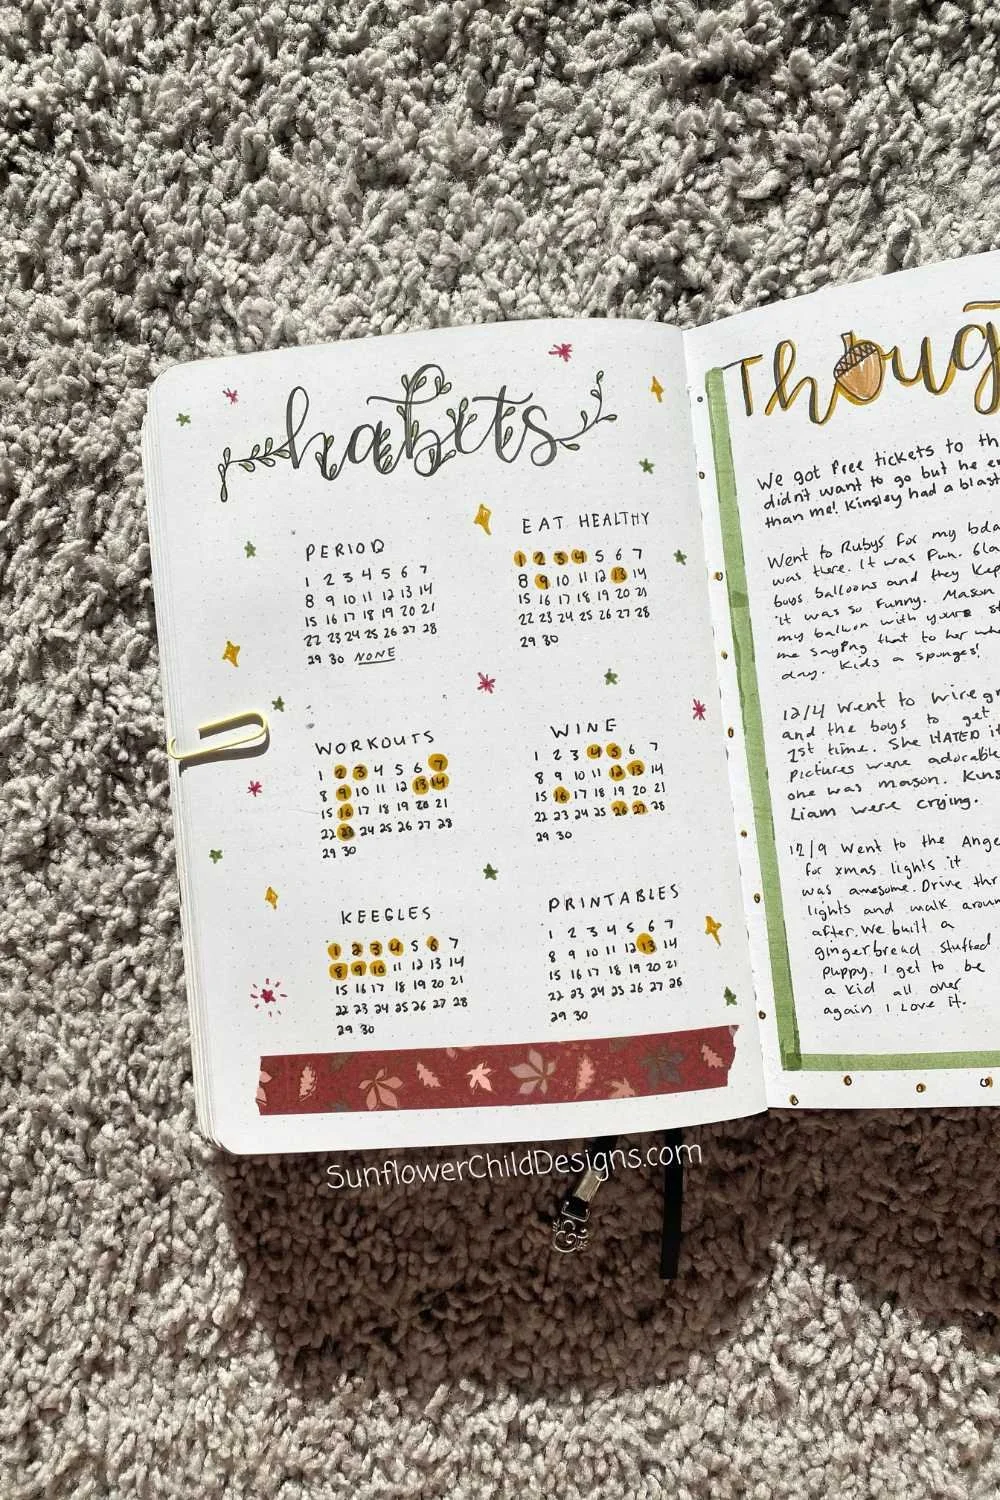 habits
PERIOD
1 2 3 4 5 6 7
8 9 10 11 12 13 14
15 16 17 18 19 20 21
22 23 24 25 26 27 28
29 30 NONE
EAT HEALTHY
1 2 3 4 5 6 7
8 9 10 11 12 13 14
15 16 17 18 19 20 21
22 23 24 25 26 27 28
29 30
WORKOUTS
1 2 3 4 5 6 7
8 9 10 11 12 13 14
15 16 17 18 19 20 21
22 23 24 25 26 27 28
29 30
WINE
1 2 3 4 5 6 7
8 9 10 11 12 13 14
15 16 17 18 19 20 21
22 23 24 25 26 27 28
29 30
KEEGLES
1 2 3 4 5 6 7
8 9 10 11 12 13 14
15 16 17 18 19 20 21
22 23 24 25 26 27 28
29 30
PRINTABLES
1 2 3 4 5 6 7
8 9 10 11 12 13 14
15 16 17 18 19 20 21
22 23 24 25 26 27 28
29 30
Thoug
We got free tickets to th
didnt want to go but he en
than me! Kinsley had a blast
Went to Rubys for my bda
was there. It was fun. Gla
boys balloons and they kep
it was so funny. Mason
my balloon with yours st
me saying that to her wh
day. Kids a sponges!
12/4 Went to wiregr
and the boys to get
1st time. She HATED it
Pictures were adorable
one was mason. Kins
Liam were crying.
12/9 Went to the Ange
for xmas lights it
was amesome. Drive thr
lights and walk aroun
after. We built a
gingerbread stuffed
puppy. I get to be
a kid all over
again I love it.
SunflowerChildDesigns.com